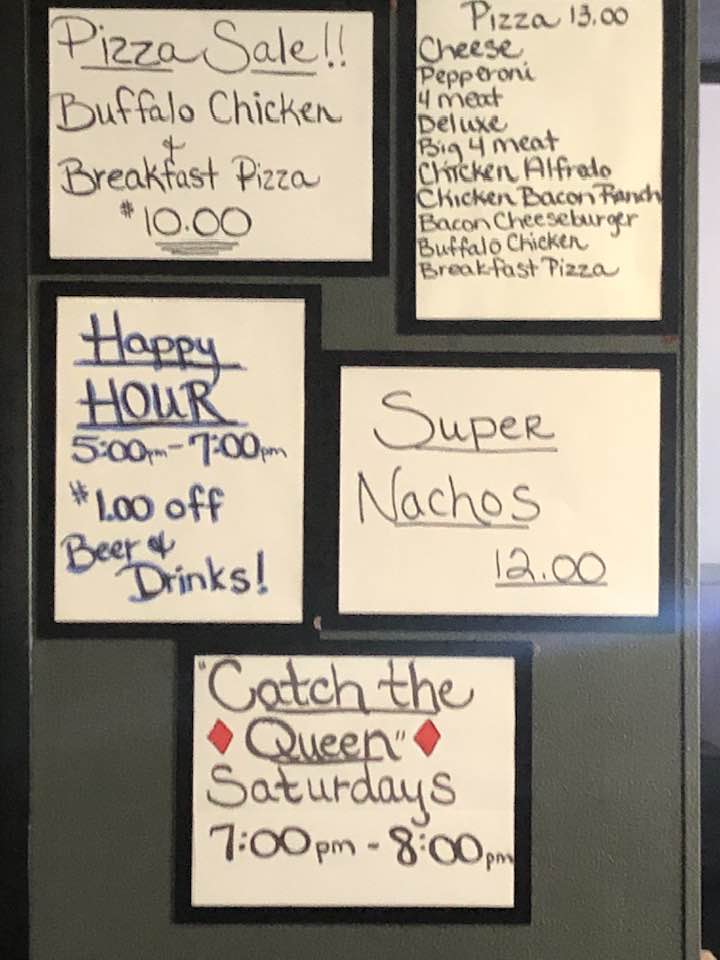 Pizza Sale!!
Buffalo Chicken
&
Breakfast Pizza
$10.00
Pizza 13.00
Cheese
Pepperoni
4 meat
Deluxe
Big 4 meat
Chicken Alfredo
Chicken Bacon Ranch
Bacon Cheeseburger
Buffalo Chicken
Breakfast Pizza
Happy
HOUR
5:00pm-7:00pm
$1.00 off
Beer &
Drinks!
Super
Nachos
12.00
"Catch the
Queen"
Saturdays
7:00pm - 8:00pm